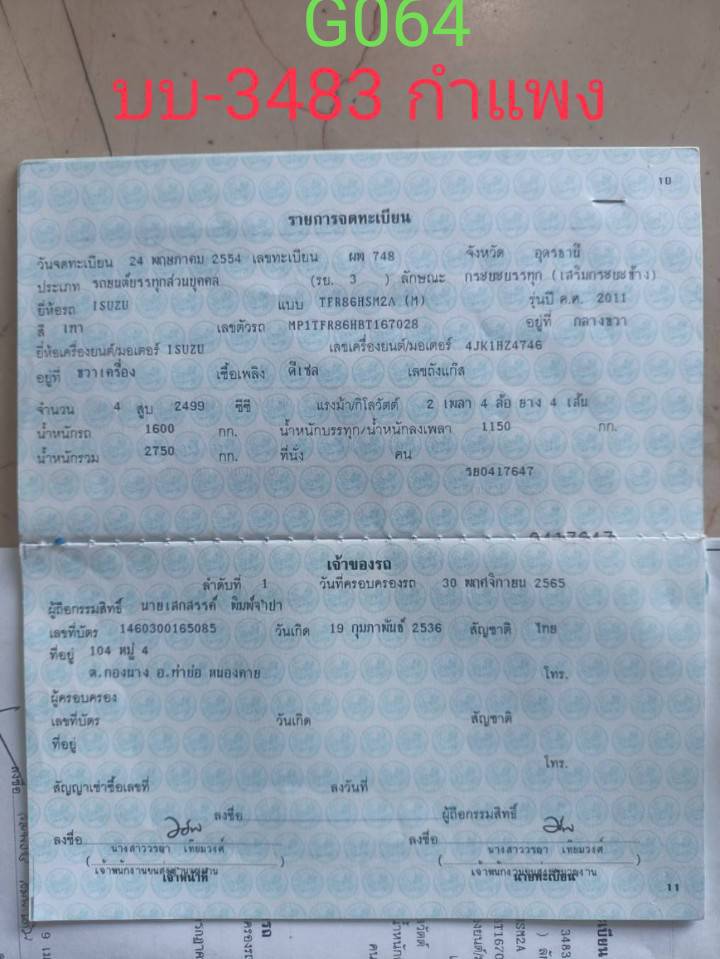 G064
บบ-3483 กำแพง
10
รายการจดทะเบียน
วันจดทะเบียน 24 พฤษภาคม 2554 เลขทะเบียน ผพ 748 จังหวัด อุดรธานี
ประเภท รถยนต์บรรทุกส่วนบุคคล (รย. 3 ) ลักษณะ กระบะบรรทุก (เสริมกระบะข้าง)
ยี่ห้อรถ ISUZU แบบ TFR86HSM2A (M) รุ่นปี ค.ศ. 2011
สี เทา เลขตัวรถ MP1TFR86HBT167028 อยู่ที่ กลางขวา
ยี่ห้อเครื่องยนต์/มอเตอร์ ISUZU เลขเครื่องยนต์/มอเตอร์ 4JK1HZ4746
อยู่ที่ ขวาเครื่อง เชื้อเพลิง ดีเซล เลขถังแก๊ส
จำนวน 4 สูบ 2499 ซีซี แรงม้า/กิโลวัตต์ 2 เพลา 4 ล้อ ยาง 4 เส้น
น้ำหนักรถ 1600 กก. น้ำหนักบรรทุก/น้ำหนักลงเพลา 1150 กก.
น้ำหนักรวม 2750 กก. ที่นั่ง คน
รย0417647
0417647
เจ้าของรถ
ลำดับที่ 1 วันที่ครอบครองรถ 30 พฤศจิกายน 2565
ผู้ถือกรรมสิทธิ์ นายเสกสรรค์
เลขที่บัตร 1460300165085 วันเกิด 19 กุมภาพันธ์ 2536 สัญชาติ ไทย
ที่อยู่ 104 หมู่ 4
ต.กองนาง อ.ท่าบ่อ หนองคาย โทร.
ผู้ครอบครอง
เลขที่บัตร วันเกิด สัญชาติ
ที่อยู่
โทร.
สัญญาเช่าซื้อเลขที่ ลงวันที่
ลงชื่อ ผู้ถือกรรมสิทธิ์
ลงชื่อ ลงชื่อ
นางสาววรญา เทียมวงศ์ นางสาววรญา เทียมวงศ์
เจ้าหน้าที่ นายทะเบียน
11